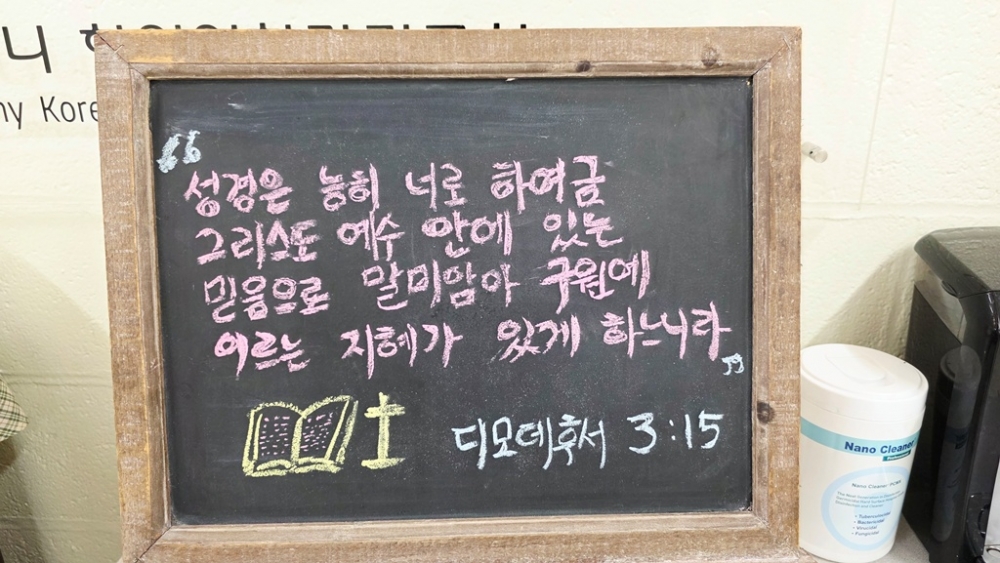 “성경은 능히 너로 하여금
그리스도 예수 안에 있는
믿음으로 말미암아 구원에
이르는 지혜가 있게 하느니라”
디모데후서 3:15
Nano Cleaner
Nano Cleaner
- Tuberculocidal
- Bactericidal
- Virucidal
- Fungicidal